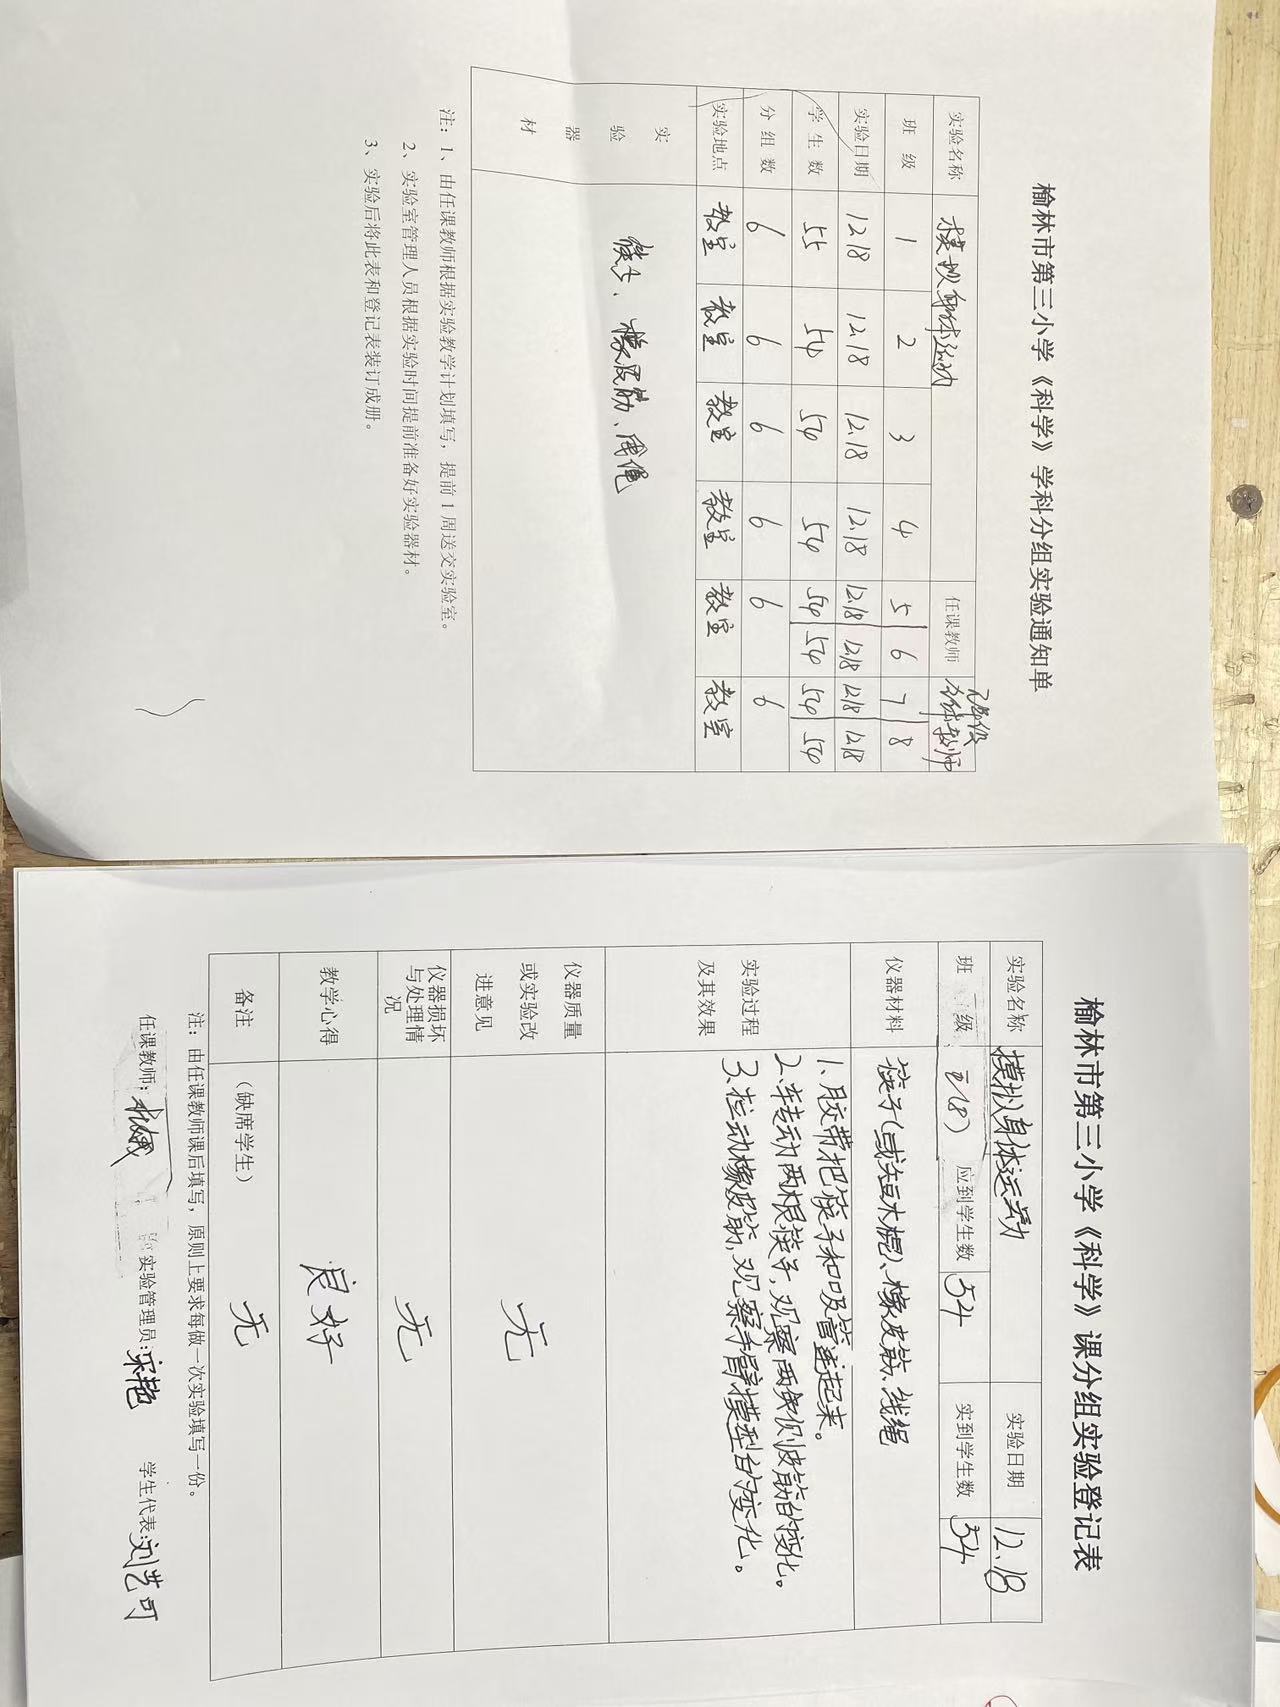 榆林市第三小学《科学》学科分组实验通知单
实验名称 模拟身体运动 任课教师 全体教师
班级 1 2 3 4 5 6 7 8
实验日期 12.18 12.18 12.18 12.18 12.18 12.18 12.18 12.18
学生数 55 54 54 54 54 54 54 54
分组数 6 6 6 6 6 6
实验地点 教室 教室 教室 教室 教室 教室
实验器材 筷子、橡皮筋、绳
注：1、由任课教师根据实验教学计划填写，提前1周送交实验室。
2、实验室管理人员根据实验时间提前准备好实验器材。
3、实验后将此表和登记表装订成册。
榆林市第三小学《科学》课分组实验登记表
实验名称 模拟身体运动 实验日期 12.18
班级 (8) 应到学生数 54 实到学生数 54
仪器材料 筷子(或短木棍)、橡皮筋、线绳
实验过程及其效果
1、胶带把筷子和吸管连起来。
2、转动两根筷子,观察两侧皮筋的变化。
3、拉动橡皮筋,观察手臂模型的变化。
仪器质量或实验改进意见 无
仪器损坏与处理情况 无
教学心得 良好
备注 (缺席学生) 无
注：由任课教师课后填写，原则上要求每做一次实验填写一份。
任课教师: 实验管理员:宋艳 学生代表:刘艺可